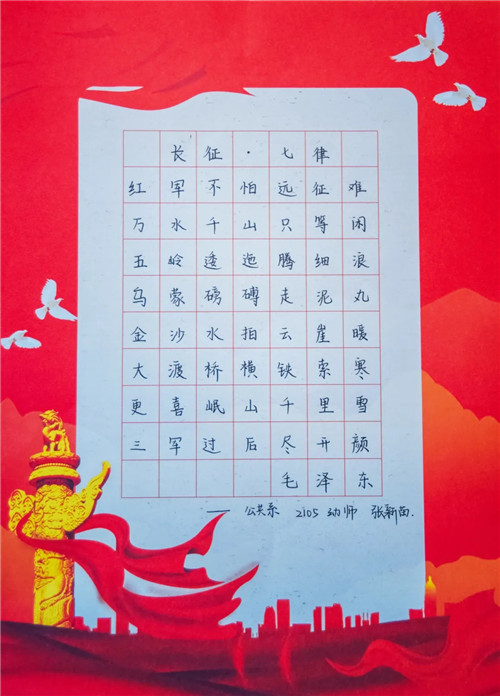 长征·七律
红军不怕远征难
万水千山只等闲
五岭逶迤腾细浪
乌蒙磅礴走泥丸
金沙水拍云崖暖
大渡桥横铁索寒
更喜岷山千里雪
三军过后尽开颜
毛泽东
—— 公共系 2105 幼师 张新苗.